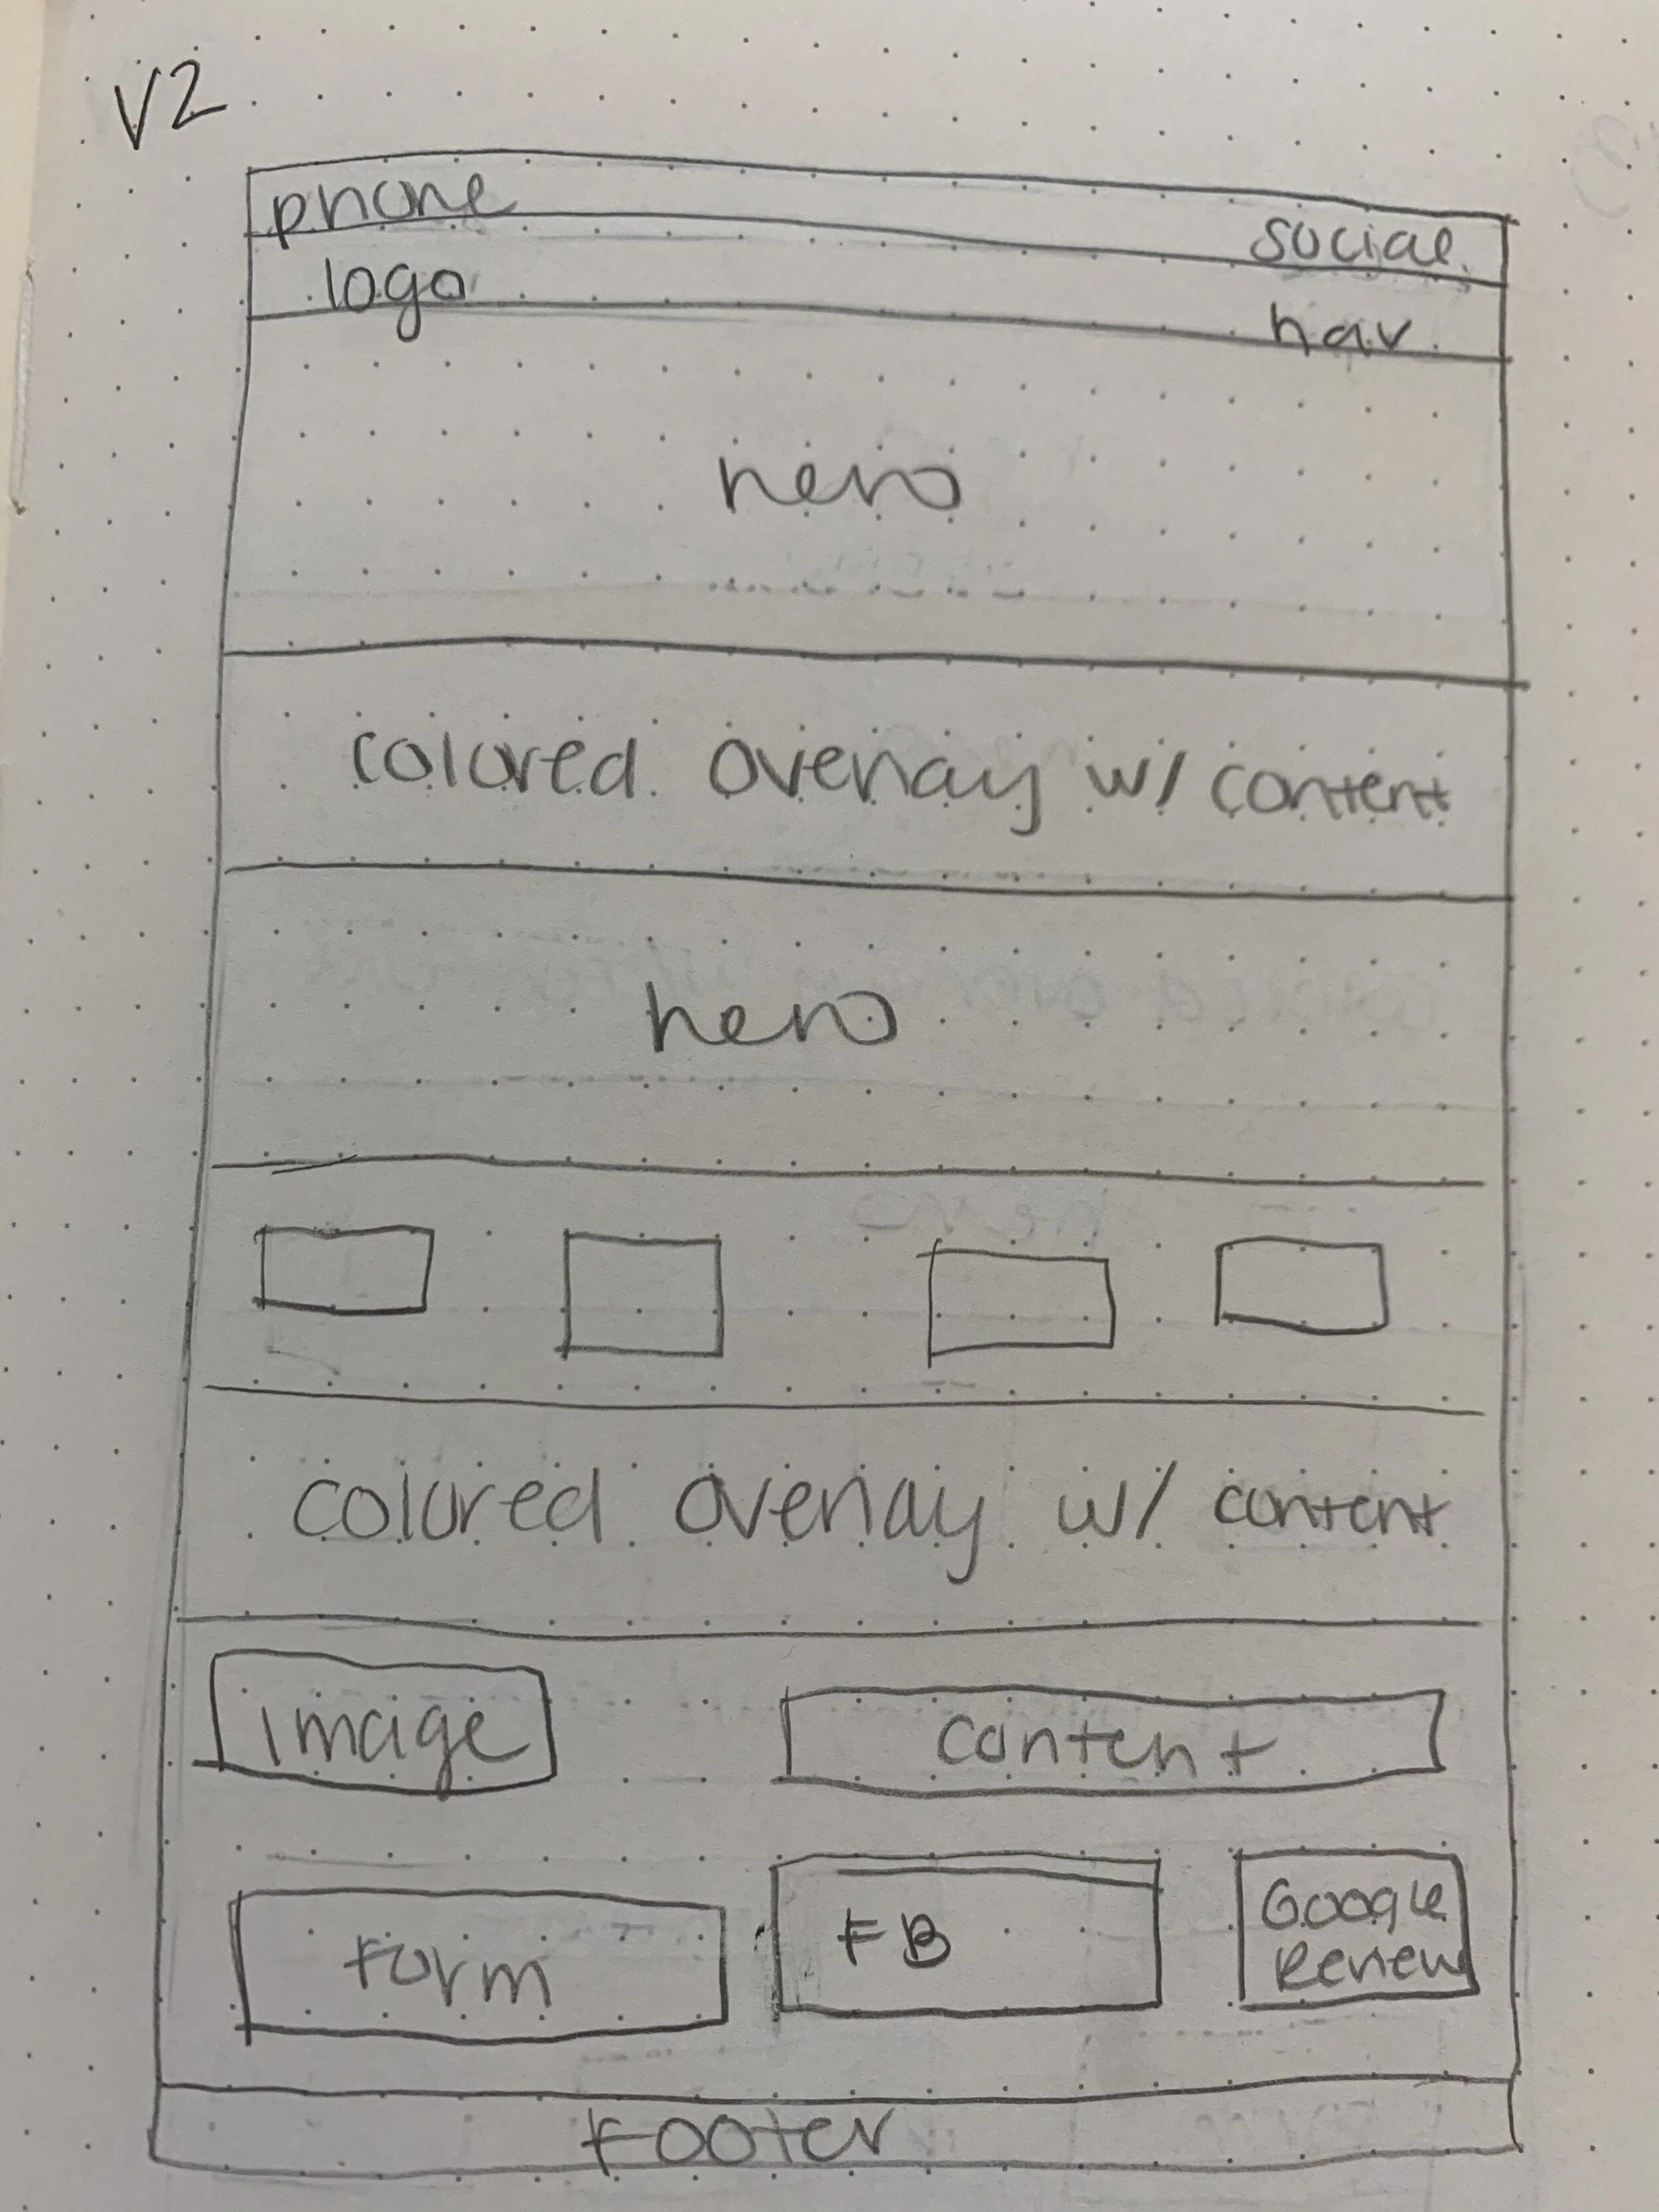 V2
phone
social
logo
nav
hero
colored overlay w/ content
hero
colored overlay w/ content
image
content
form
FB
Google
Review
Footer